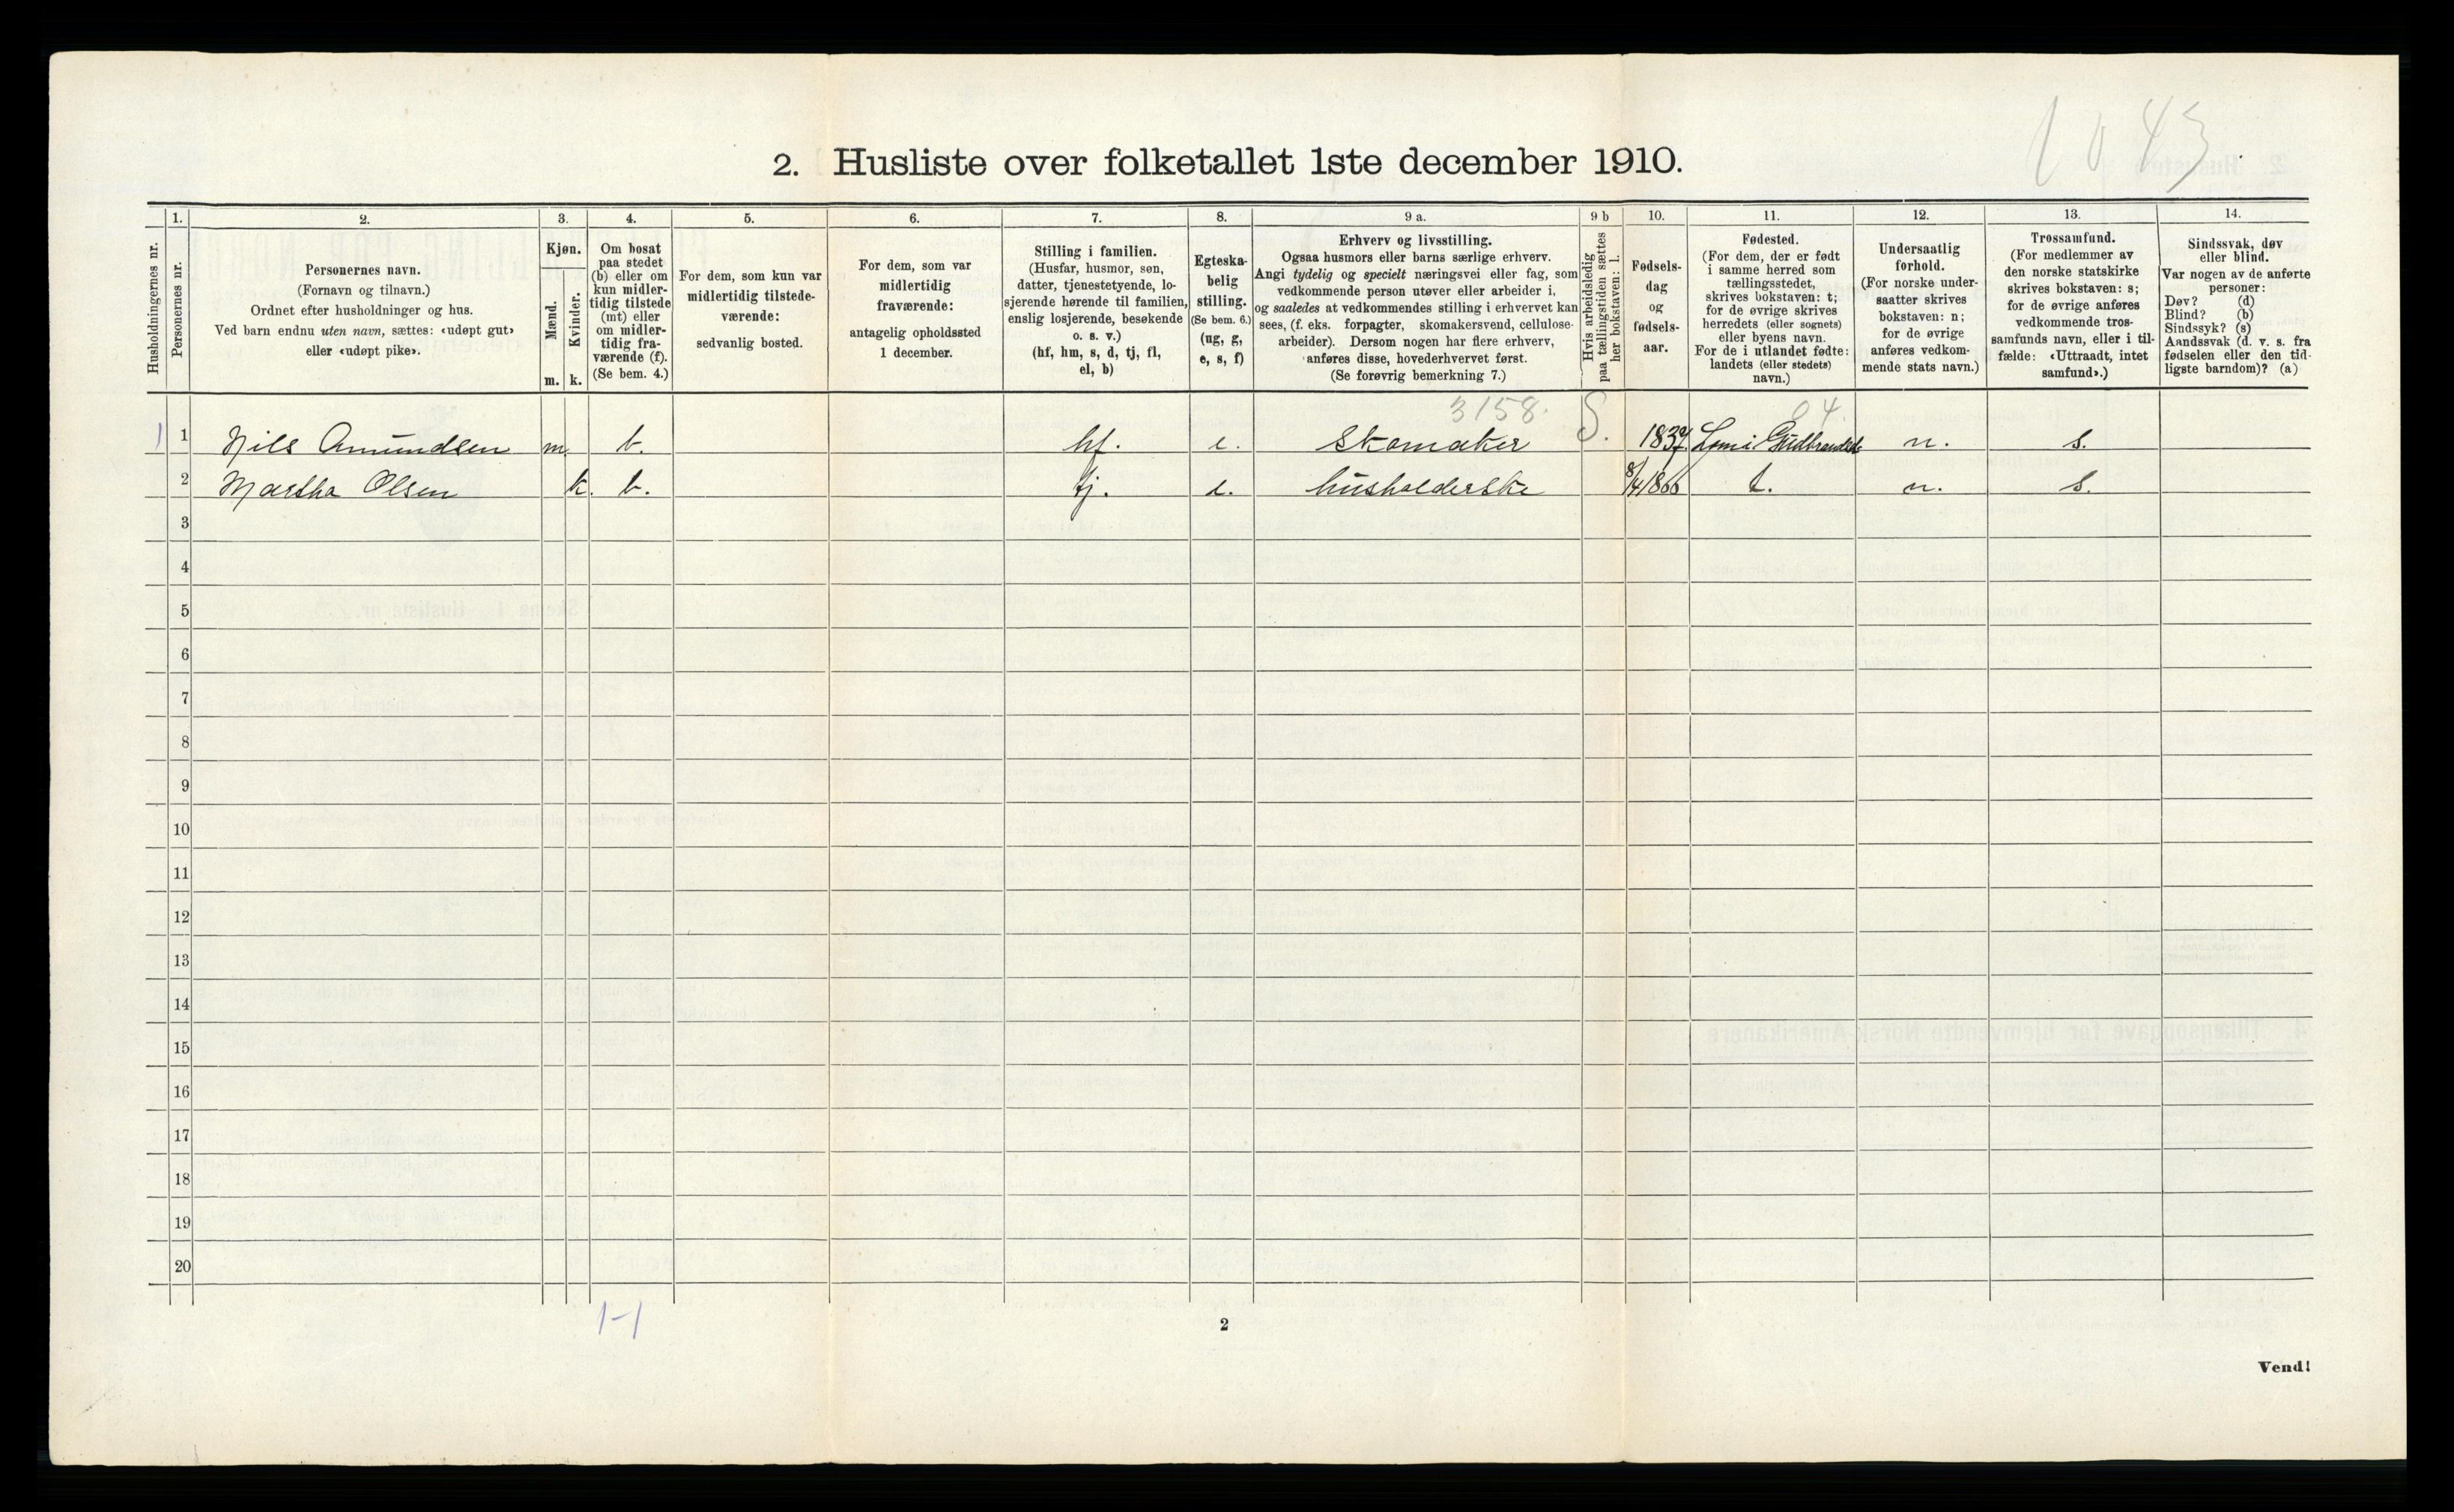 1043
2. Husliste over folketallet 1ste december 1910.
Husholdningernes nr.
1.
Personernes nr.
2.
Personernes navn.
(Fornavn og tilnavn.)
Ordnet efter husholdninger og hus.
Ved barn endnu uten navn, sættes: «udøpt gut»
eller «udøpt pike».
3.
Kjøn.
Mænd.
Kvinder.
m. k.
4.
Om bosat
paa stedet
(b) eller om
kun midler-
tidig tilstede
(mt) eller
om midler-
tidig fra-
værende (f).
(Se bem. 4.)
5.
For dem, som kun var
midlertidig tilstede-
værende:
sedvanlig bosted.
6.
For dem, som var
midlertidig
fraværende:
antagelig opholdssted
1 december.
7.
Stilling i familien.
(Husfar, husmor, søn,
datter, tjenestetyende, lo-
sjerende hørende til familien,
enslig losjerende, besøkende
o. s. v.)
(hf, hm, s, d, tj, fl,
el, b)
8.
Egteska-
belig
stilling.
(Se bem. 6.)
(ug, g,
e, s, f)
9 a.
Erhverv og livsstilling.
Ogsaa husmors eller barns særlige erhverv.
Angi tydelig og specielt næringsvei eller fag, som
vedkommende person utøver eller arbeider i,
og saaledes at vedkommendes stilling i erhvervet kan
sees, (f. eks. forpagter, skomakersvend, cellulose-
arbeider). Dersom nogen har flere erhverv,
anføres disse, hovederhvervet først.
(Se forøvrig bemerkning 7.)
9 b
Hvis arbeidsledig
paa tællingstiden sættes
her bokstaven: l.
10.
Fødsels-
dag
og
fødsels-
aar.
11.
Fødested.
(For dem, der er født
i samme herred som
tællingsstedet,
skrives bokstaven: t;
for de øvrige skrives
herredets (eller sognets)
eller byens navn.
For de i utlandet fødte:
landets (eller stedets)
navn.)
12.
Undersaatlig
forhold.
(For norske under-
saatter skrives
bokstaven: n;
for de øvrige
anføres vedkom-
mende stats navn.)
13.
Trossamfund.
(For medlemmer av
den norske statskirke
skrives bokstaven: s;
for de øvrige anføres
vedkommende tros-
samfunds navn, eller i til-
fælde: «Uttraadt, intet
samfund».)
14.
Sindssvak, døv
eller blind.
Var nogen av de anførte
personer:
Døv? (d)
Blind? (b)
Sindssyk? (s)
Aandssvak (d. v. s. fra
fødselen eller den tid-
ligste barndom)? (a)
3158. 04.
1 1 Nils Amundsen m. b. hf. e. Skomaker S. 1837 Lom i Gudbrandsd. n. s.
2 Martha Olsen k. b. tj. e. husholderske 8/4 1866 t. n. s.
3
4
5
6
7
8
9
10
11
12
13
14
15
16
17
18
19
20
1-1
2
Vend!